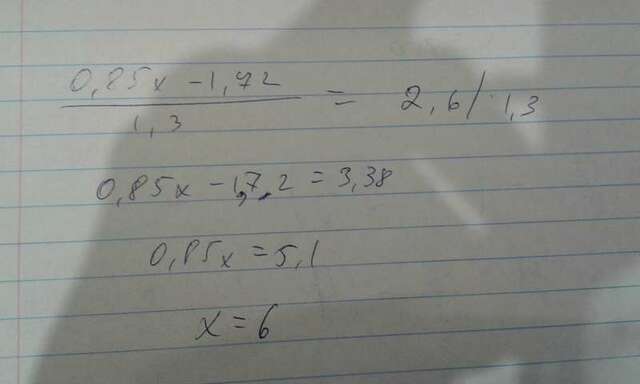 0,85x - 1,72 / 1,3 = 2,6 / · 1,3
0,85x - 1,72 = 3,38
0,85x = 5,1
x = 6